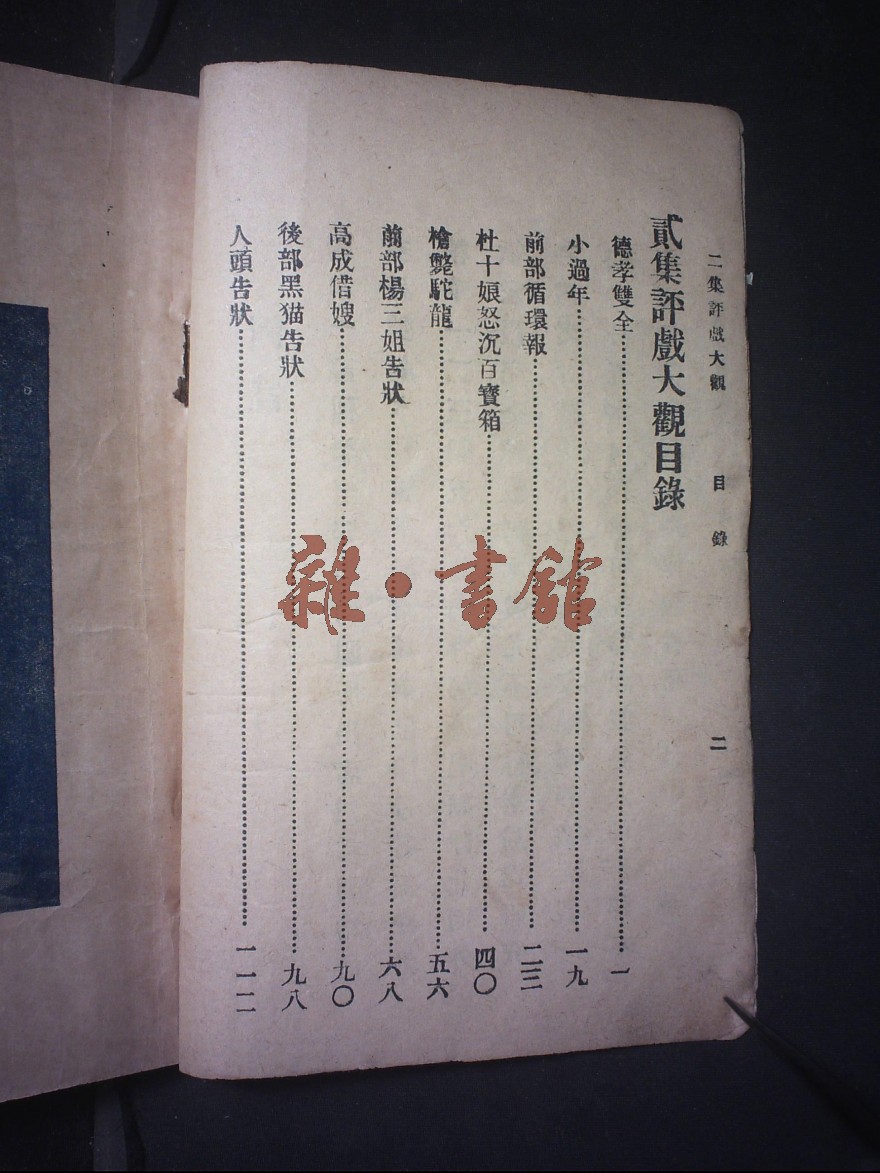 二集評戲大觀 目錄 二
貳集評戲大觀目錄
德孝雙全…一
小過年…一九
前部循環報…二三
杜十娘怒沉百寶箱…四〇
槍斃駝龍…五六
前部楊三姐告狀…六八
高成借嫂…九〇
後部黑猫告狀…九八
人頭告狀…一一二
雜·書館